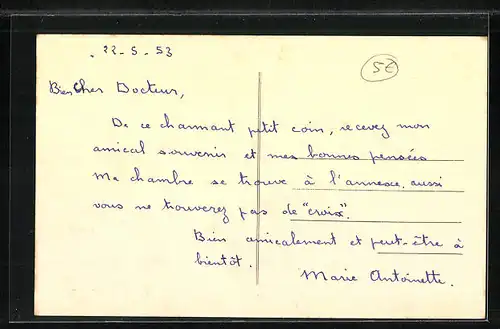 22-5-53
52
Bien cher Docteur,
De ce charmant petit coin, recevez mon
amical souvenir et mes bonnes pensées
Ma chambre se trouve à l'annexe, aussi
vous ne trouverez pas de "croix".
Bien amicalement et peut-être à
bientôt.
Marie Antoinette.